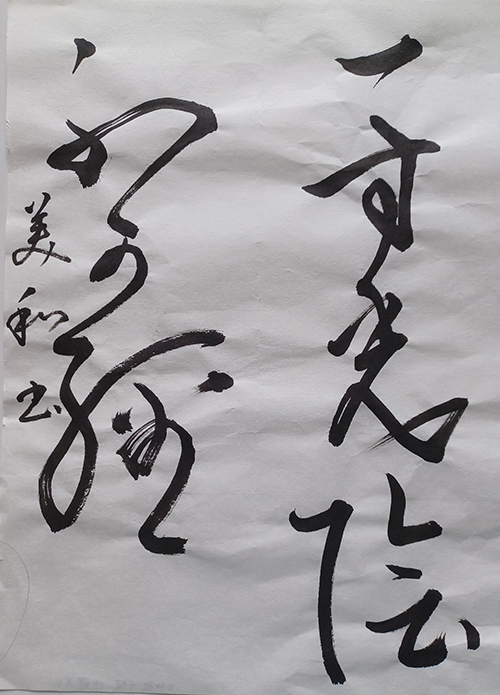 一寸光陰
不可輕
美和书